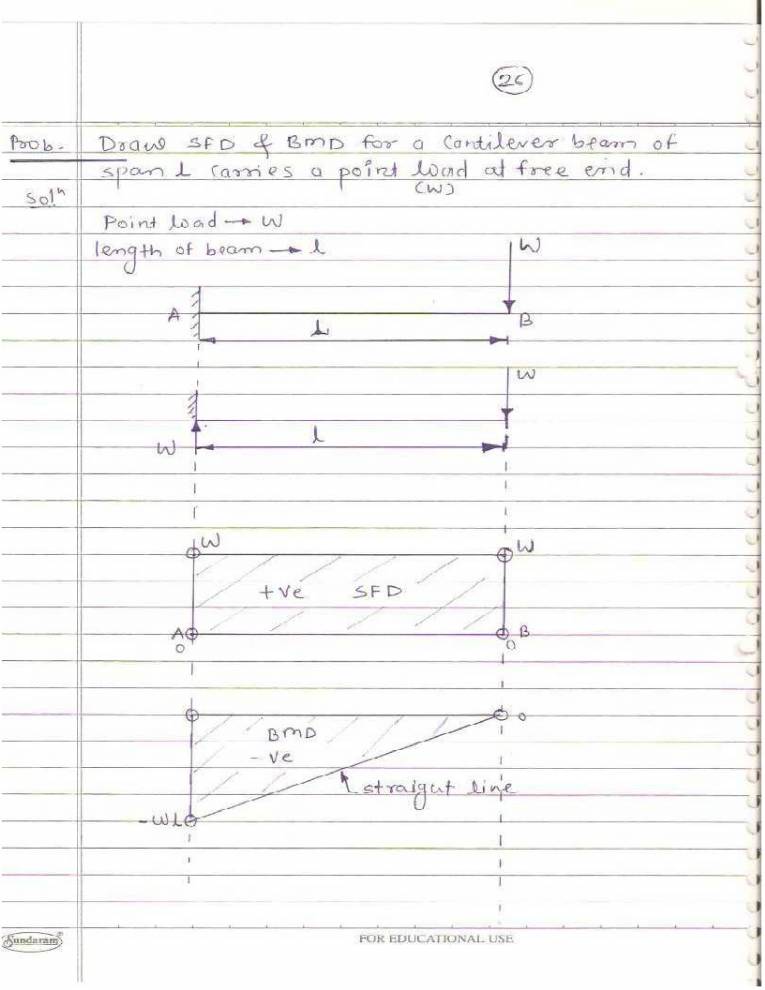 26
Prob. Draw SFD & BMD for a Cantilever beam of
span L carries a point load at free end.
(W)
Solⁿ
Point load → W
length of beam → l
W
A
B
L
W
W
l
W
W
+ve SFD
A
B
0
0
0
BMD
-ve
straigut line
-WL
Sundaram®
FOR EDUCATIONAL USE